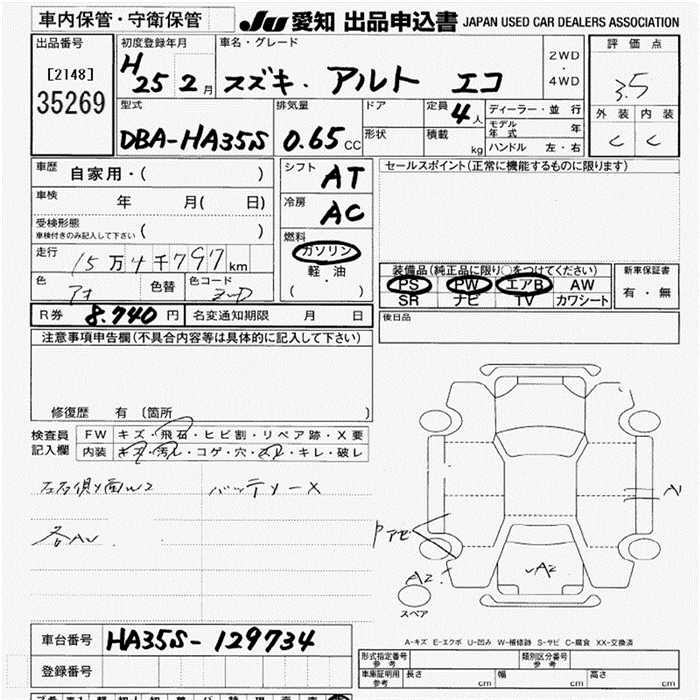 車内保管・守衛保管
JU 愛知 出品申込書 JAPAN USED CAR DEALERS ASSOCIATION
出品番号
[2148]
35269
初度登録年月
H 25 2 月
車名・グレード
スズキ・アルト エコ
2WD
・
4WD
評価点
3.5
外装 内装
C C
型式
DBA-HA35S
排気量
0.65 CC
ドア
形状
定員
4 人
積載
kg
ディーラー・並行
モデル年式 年
ハンドル 左・右
車歴
自家用・( )
車検
年 月( 日)
受検形態
車検付きのみ記入して下さい ( )
走行
15万4千797km
色
色替
色コード
シフト
AT
冷房
AC
燃料
ガソリン
軽油
( ・ )
セールスポイント(正常に機能するものに限ります)
装備品(純正品に限り○をつけてください)
PS PW エアB AW
SR ナビ TV カワシート
新車保証書
有・無
後日品
R券 8.740 円
名変通知期限 月 日
注意事項申告欄(不具合内容等は具体的に記入して下さい)
修復歴 有 〔箇所 〕
検査員
記入欄
FW キズ・飛石・ヒビ割・リペア跡・X要
内装 キズ・汚レ・コゲ・穴・スレ・キレ・破レ
左右側面W2 バッテリーX
各AU
A1
アセビ
A2
A2
スペア
A-キズ E-エクボ U-凹み W-補修跡 S-サビ C-腐食 XX-交換済
車台番号
HA35S-129734
登録番号
形式指定番号
参考
類別区分番号
参考
車庫証明用
参考
長さ cm
幅 cm
高さ cm